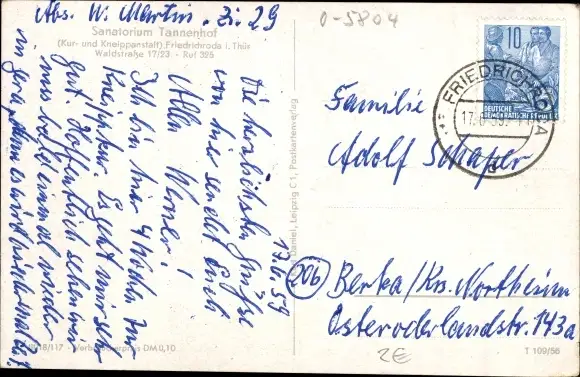 Abs. W. Martin, Zi. 29
Sanatorium Tannenhof
(Kur- und Kneippanstalt) Friedrichroda i. Thür
Waldstraße 17/23 - Ruf 325
17.6.59
Die herzlichsten Grüße
von hier sendet Euch
Allen Werner!
Ich bin hier 4 Wochen zur
Kneippkur. Es geht mir sehr
gut. Hoffentlich sehen wir
uns bald einmal wieder
in Gera, wenn
0-5804
10
DEUTSCHE
DEMOKRATISCHE REPUBLIK
FRIEDRICHRODA
17.6.59
Familie
Adolf Schaper
(20b) Berka/Krs. Northeim
Osteroderlandstr. 143a
Daniel, Leipzig C 1, Postkartenverlag
18/117 - Verbraucherpreis DM 0,10
2€
T 109/56